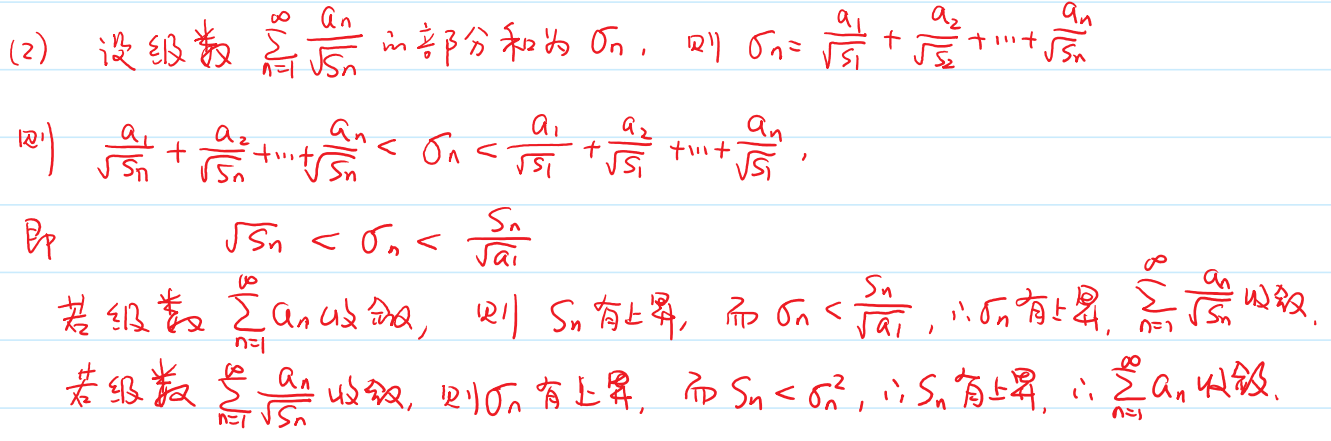 (2) 设级数 $\sum_{n=1}^{\infty} \frac{a_n}{\sqrt{S_n}}$ 的部分和为 $\sigma_n$, 则 $\sigma_n = \frac{a_1}{\sqrt{S_1}} + \frac{a_2}{\sqrt{S_2}} + \cdots + \frac{a_n}{\sqrt{S_n}}$
则 $\frac{a_1}{\sqrt{S_n}} + \frac{a_2}{\sqrt{S_n}} + \cdots + \frac{a_n}{\sqrt{S_n}} < \sigma_n < \frac{a_1}{\sqrt{S_1}} + \frac{a_2}{\sqrt{S_1}} + \cdots + \frac{a_n}{\sqrt{S_1}}$,
即 $\sqrt{S_n} < \sigma_n < \frac{S_n}{\sqrt{a_1}}$
若级数 $\sum_{n=1}^{\infty} a_n$ 收敛, 则 $S_n$ 有上界, 而 $\sigma_n < \frac{S_n}{\sqrt{a_1}}$, ∴ $\sigma_n$ 有上界, $\sum_{n=n}^{\infty} \frac{a_n}{\sqrt{S_n}}$ 收敛.
若级数 $\sum_{n=1}^{\infty} \frac{a_n}{\sqrt{S_n}}$ 收敛, 则 $\sigma_n$ 有上界, 而 $S_n < \sigma_n^2$, ∴ $S_n$ 有上界, ∴ $\sum_{n=1}^{\infty} a_n$ 收敛.